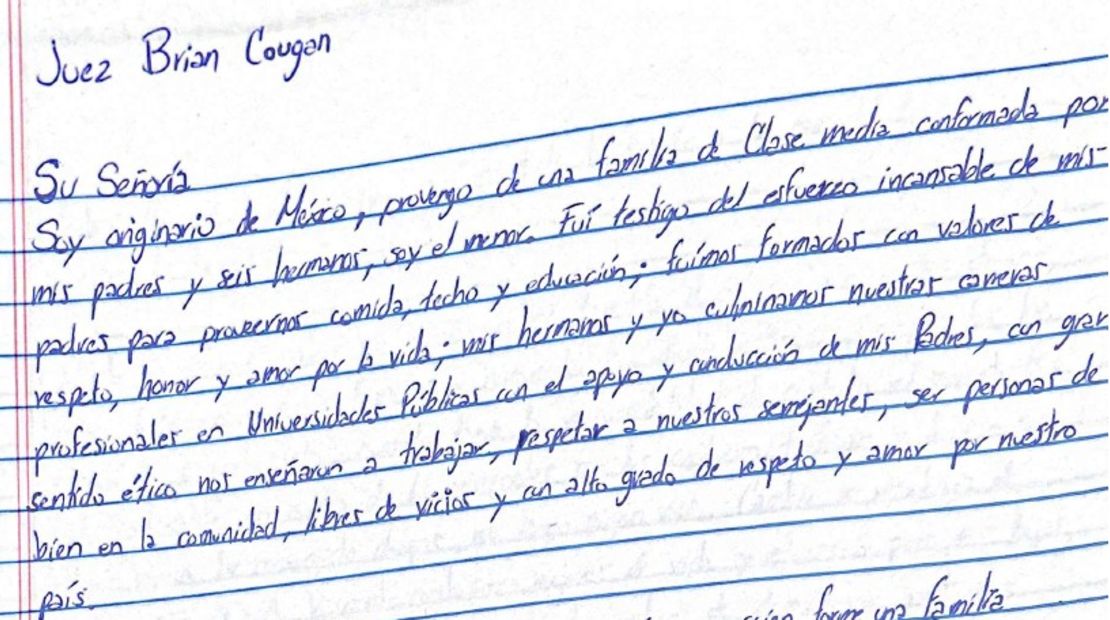 Juez Brian Cougan
Su Señoría
Soy originario de México, provengo de una familia de Clase media conformada por
mis padres y seis hermanos, soy el menor. Fuí testigo del esfuerzo incansable de mis-
padres para proveernos comida, techo y educación; fuimos formados con valores de
respeto, honor y amor por la vida; mis hermanos y yo culminamos nuestras carreras
profesionales en Universidades Públicas con el apoyo y conducción de mis Padres, con gran
sentido ético nos enseñaron a trabajar, respetar a nuestros semejantes, ser personas de
bien en la comunidad, libres de vicios y con alto grado de respeto y amor por nuestro
país.
forme una familia